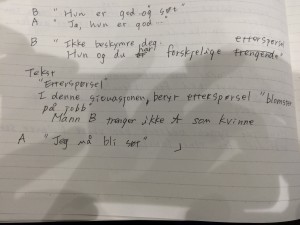 B "Hun er god og søt"
A "Ja, hun er god ..."
B "Ikke beskymre deg. etterspørsel
Hun og du har forskjelige trengende"
Tekst
"Etterspørsel"
I denne situasjonen, betyr etterspørsel "blomster
på jobb"
Mann B trenger ikke A som kvinne
A "Jeg må bli søt"